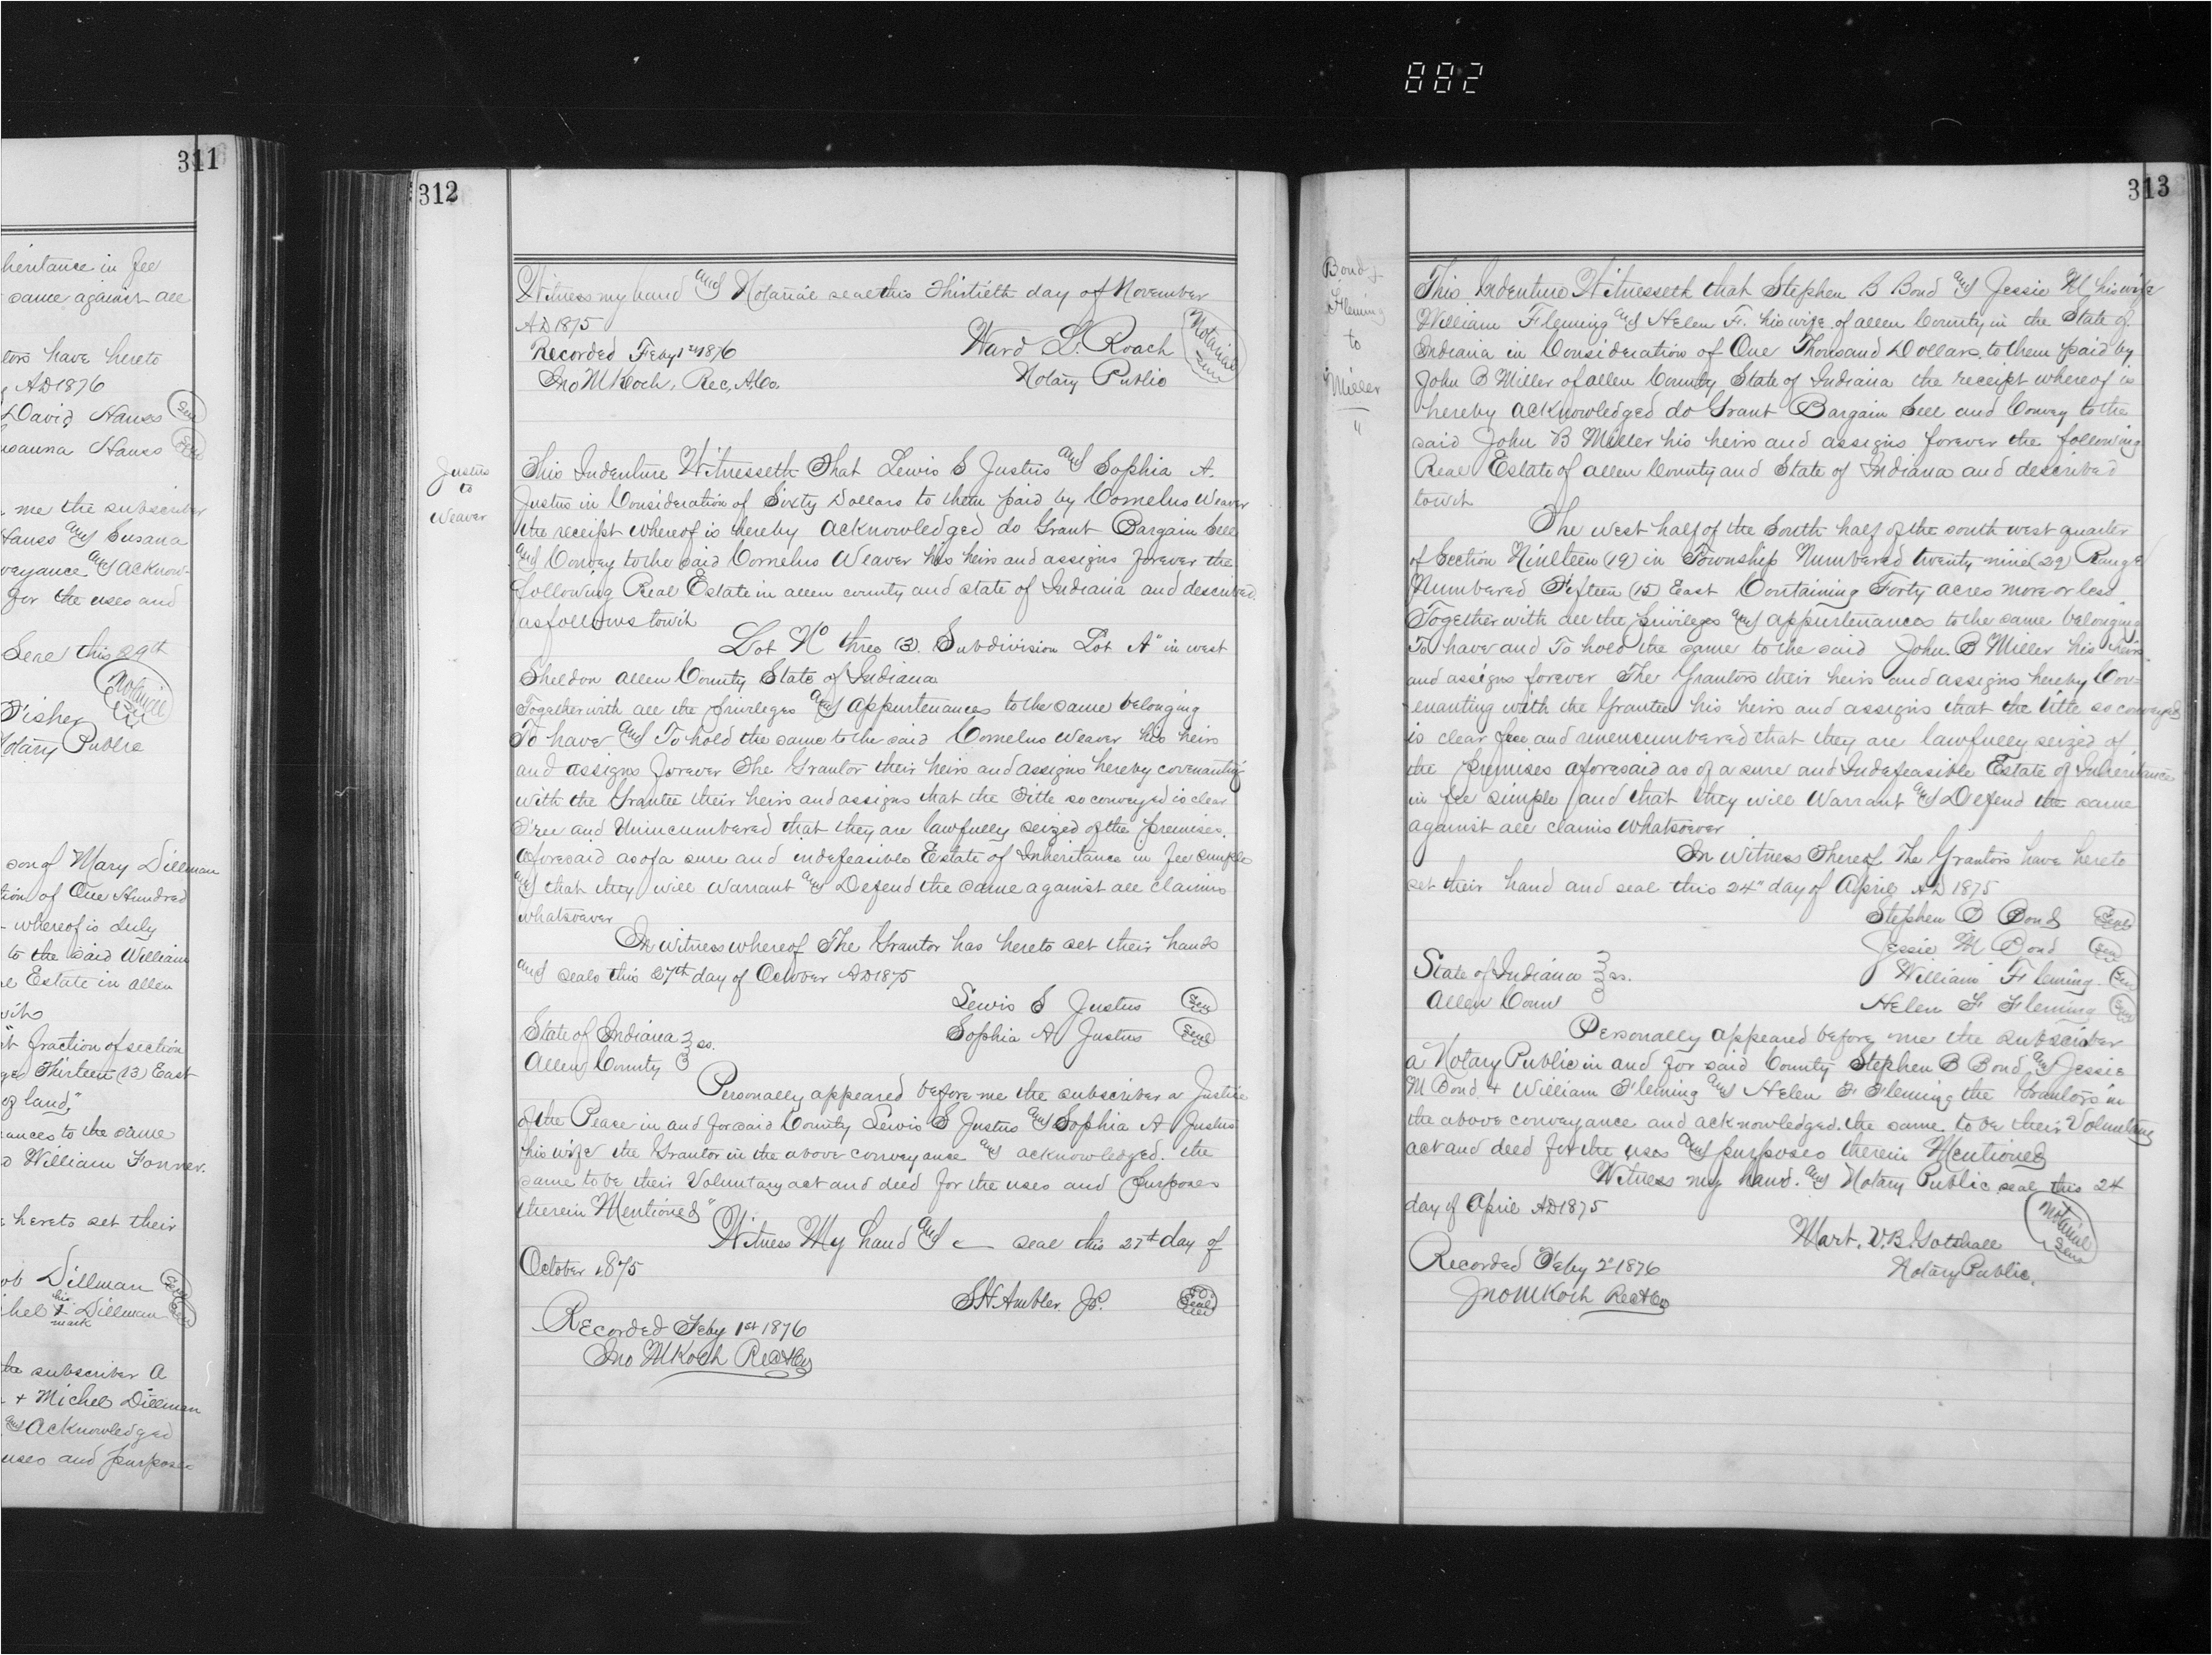 882
311
heritance in fee
same against all
tors have hereto
AD 1876
David Hauss Seal
usanna Hauss Seal
me the subscriber
Hauss and Susana
veyance and acknow-
for the uses and
Seal this 29th
Notarial
Fisher
Notary Public
son of Mary Dillman
tion of One Hundred
whereof is duly
to the said William
Estate in allen
fraction of section
Thirteen (13) East
of land,"
ances to the same
William Fonner.
hereto set their
ob Dillman Seal
his
hel X Dillman Seal
mark
the subscriber a
+ Michel Dillman
and Acknowledged
uses and purposes
312
Witness my hand and Notarial seal this Thirtieth day of November
AD 1875
Ward L. Roach Notarial Seal
Recorded Feby 1st 1876
Notary Public
Jno M Koch, Rec, A Co.
Justus
to
Weaver
This Indenture Witnesseth That Lewis S Justus and Sophia A.
Justus in Consideration of Sixty Dollars to them paid by Cornelus Weaver
the receipt whereof is hereby acknowledged do Grant Bargain Sell
and Convey to the said Cornelus Weaver his heirs and assigns forever the
following Real Estate in allen county and state of Indiana and described
as follows towit
Lot No three (3) Subdivision Lot A" in west
Sheldon allen County State of Indiana
Together with all the privileges and appurtenances to the same belonging
To have and To hold the same to the said Cornelus Weaver his heirs
and assigns forever The Grantor their heirs and assigns hereby covenanting
with the Grantee their heirs and assigns that the Title so conveyed is clear
Free and Unincumbered that they are lawfully seized of the premises.
aforesaid as of a sure and indefeasible Estate of Inheritance in fee simple
and that they will Warrant and Defend the same against all claims
whatsoever
In witness whereof The Grantor has hereto set their hands
and seals this 27th day of October AD 1875
Lewis S Justus Seal
State of Indiana ss.
Sophia A Justus Seal
Allen County
Personally appeared before me the subscriber a Justice
of the Peace in and for said County Lewis S Justus and Sophia A Justus
his wife the Grantor in the above conveyance and acknowledged. the
same to be their Voluntary act and deed for the uses and purposes
therein Mentioned"
Witness My hand and seal this 27th day of
October 1875
S H Ambler J P. Seal
Recorded Feby 1st 1876
Jno M Koch Rec A Co
313
Bond &
Fleming
to
Miller
"
This Indenture Witnesseth that Stephen B Bond and Jessie M his wife
William Fleming and Helen F. his wife of allen County in the State of
Indiana in Consideration of One Thousand Dollars to them paid by
John B Miller of allen County State of Indiana the receipt whereof is
hereby acknowledged do Grant Bargain Sell and Convey to the
said John B Miller his heirs and assigns forever the following
Real Estate of allen County and State of Indiana and described
towit
The west half of the South half of the south west quarter
of Section Ninteen (19) in Township Numbered twenty nine (29) Range
Numbered Fifteen (15) East Containing Forty acres more or less
Together with all the privileges and appurtenances to the same belonging
To have and To hold the same to the said John. B Miller his heirs
and assigns forever The Grantors their heirs and assigns hereby Cov-
enanting with the Grantee his heirs and assigns that the title so conveyed
is clear free and unencumbered that they are lawfully seized of
the premises aforesaid as of a sure and Indefeasible Estate of Inheritance
in fee simple and that they will Warrant and Defend the same
against all claims Whatsoever
In witness Thereof The Grantors have hereto
set their hand and seal this 24" day of April AD 1875
Stephen B Bond Seal
Jessie M Bond Seal
State of Indiana ss.
William Fleming Seal
Allen Coun
Helen F Fleming Seal
Personally appeared before me the subscriber
a Notary Public in and for said County Stephen B Bond and Jessie
M Bond + William Fleming and Helen F Fleming the Grantors in
the above conveyance and acknowledged. the same to be their Voluntary
act and deed for the uses and purposes therein Mentioned
Witness my hand. and Notary Public seal this 24
day of April AD 1875
Mart. V. B. Gotshall Notarial Seal
Recorded Feby 2d 1876
Notary Public.
Jno M Koch Rec A Co